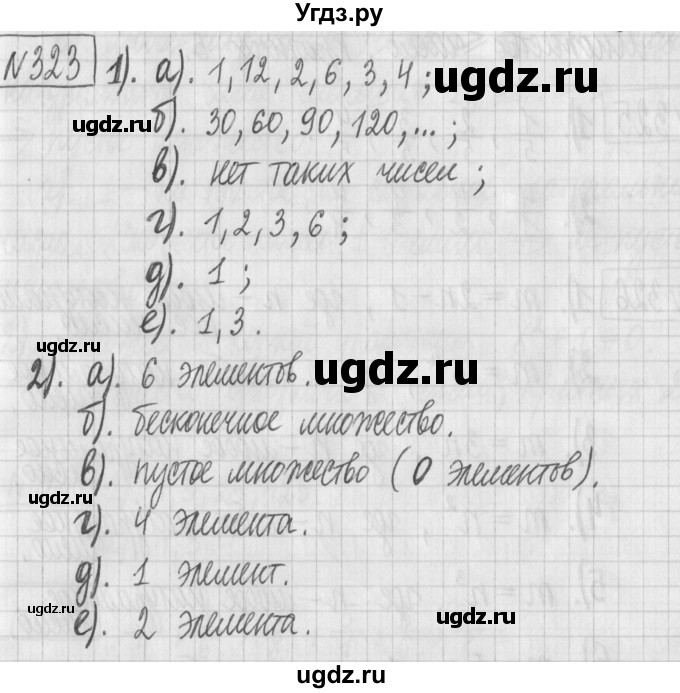 Угдз.ру
№323 1). а). 1, 12, 2, 6, 3, 4; ugdz.ru
ugdz.ru б). 30, 60, 90, 120, ... ;
в). нет таких чисел ;
г). 1, 2, 3, 6 ;
д). 1 ;
ugdz.ru е). 1, 3.
2). а). 6 элементов. ugdz.ru
б). бесконечное множество.
ugdz.ru в). пустое множество ( 0 элементов).
г). 4 элемента.
д). 1 элемент.
ugdz.ru е). 2 элемента. ugdz.ru
ugdz.ru